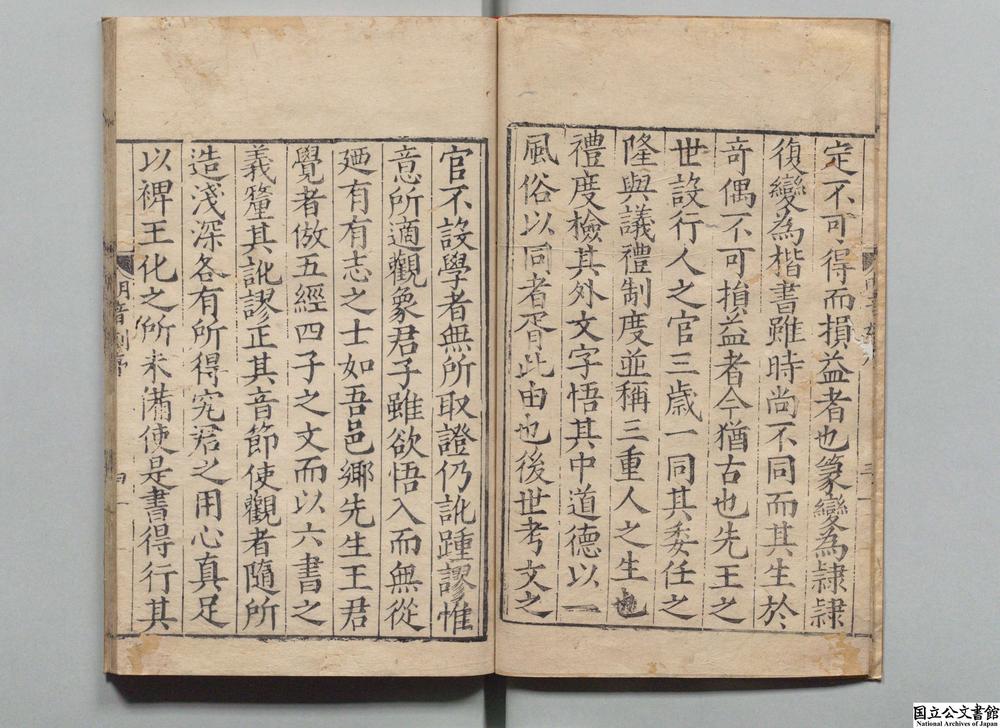 定不可得而損益者也篆變為隷隷
復變為楷書雖時尚不同而其生於
竒偶不可損益者今猶古也先王之
世設行人之官三歳一同其委任之
隆與議禮制度並稱三重人之生也
禮度檢其外文字悟其中道德以一
風俗以同者胥此由也後世考文之
官不設學者無所取證仍訛踵謬惟
意所適觀象君子雖欲悟入而無從
廼有有志之士如吾邑鄉先生王君
覺者倣五經四子之文而以六書之
義釐其訛謬正其音節使觀者隨所
造淺深各有所得究君之用心真足
以裨王化之所未備使是書得行其
國立公文書館
National Archives of Japan